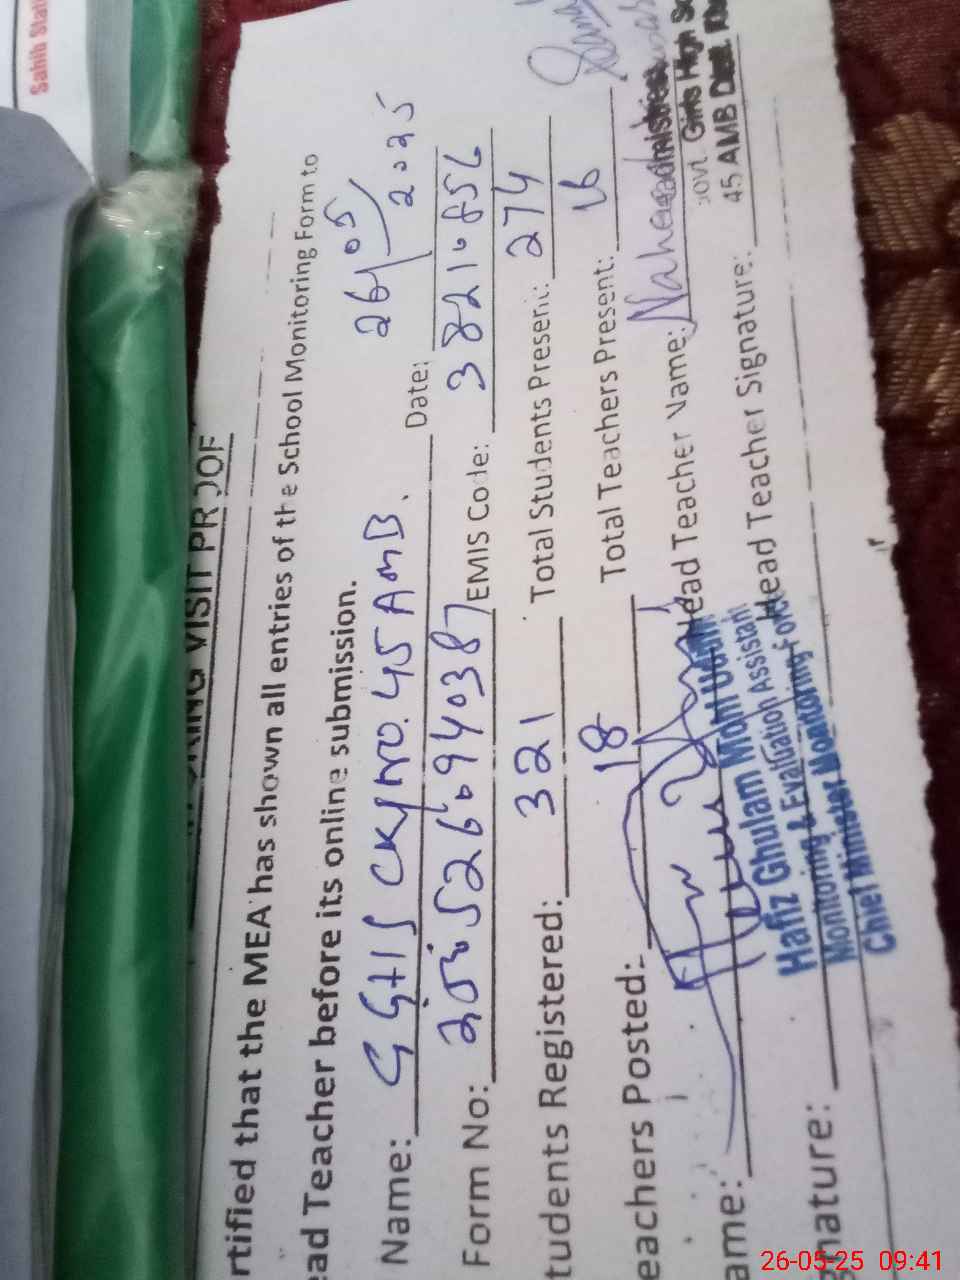 Sahib Stat
RING VISIT PROOF
rtified that the MEA has shown all entries of the School Monitoring Form to
ead Teacher before its online submission.
Name: GGHS Chk No. 45 AMB. Date: 26/05/2025
Form No: EMIS Code:
tudents Registered: 321 Total Students Present: 274
eachers Posted: 18 Total Teachers Present: 16
ame: Head Teacher Name:
Hafiz Ghulam Mohi Uddin
Monitoring & Evaluation Assistant
Monitoring Force
Chief Minister
Govt. Girls High Sc
45 AMB Distt. Kh
gnature: Head Teacher Signature:
26-05-25 09:41